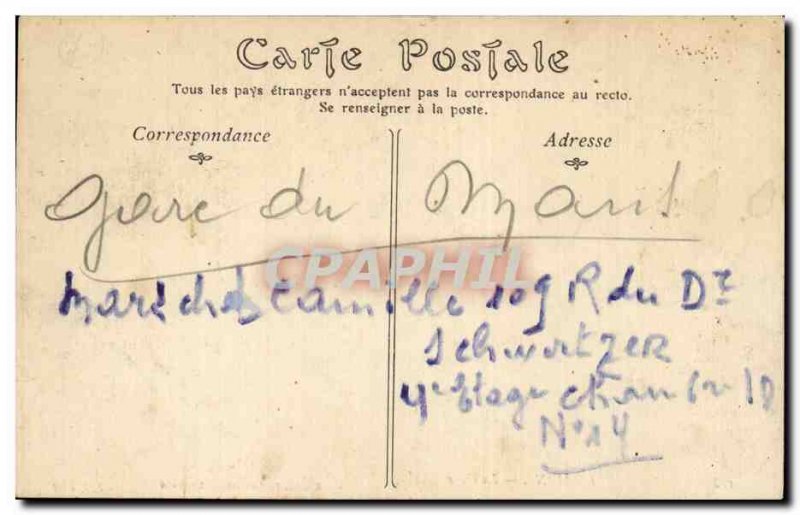 Carte Postale
Tous les pays étrangers n'acceptent pas la correspondance au recto.
Se renseigner à la poste.
Correspondance
Adresse
Gare du Mans
CPAPHIL
Camille 109 R du Dr
Schwartzer
4e Etage
No 14